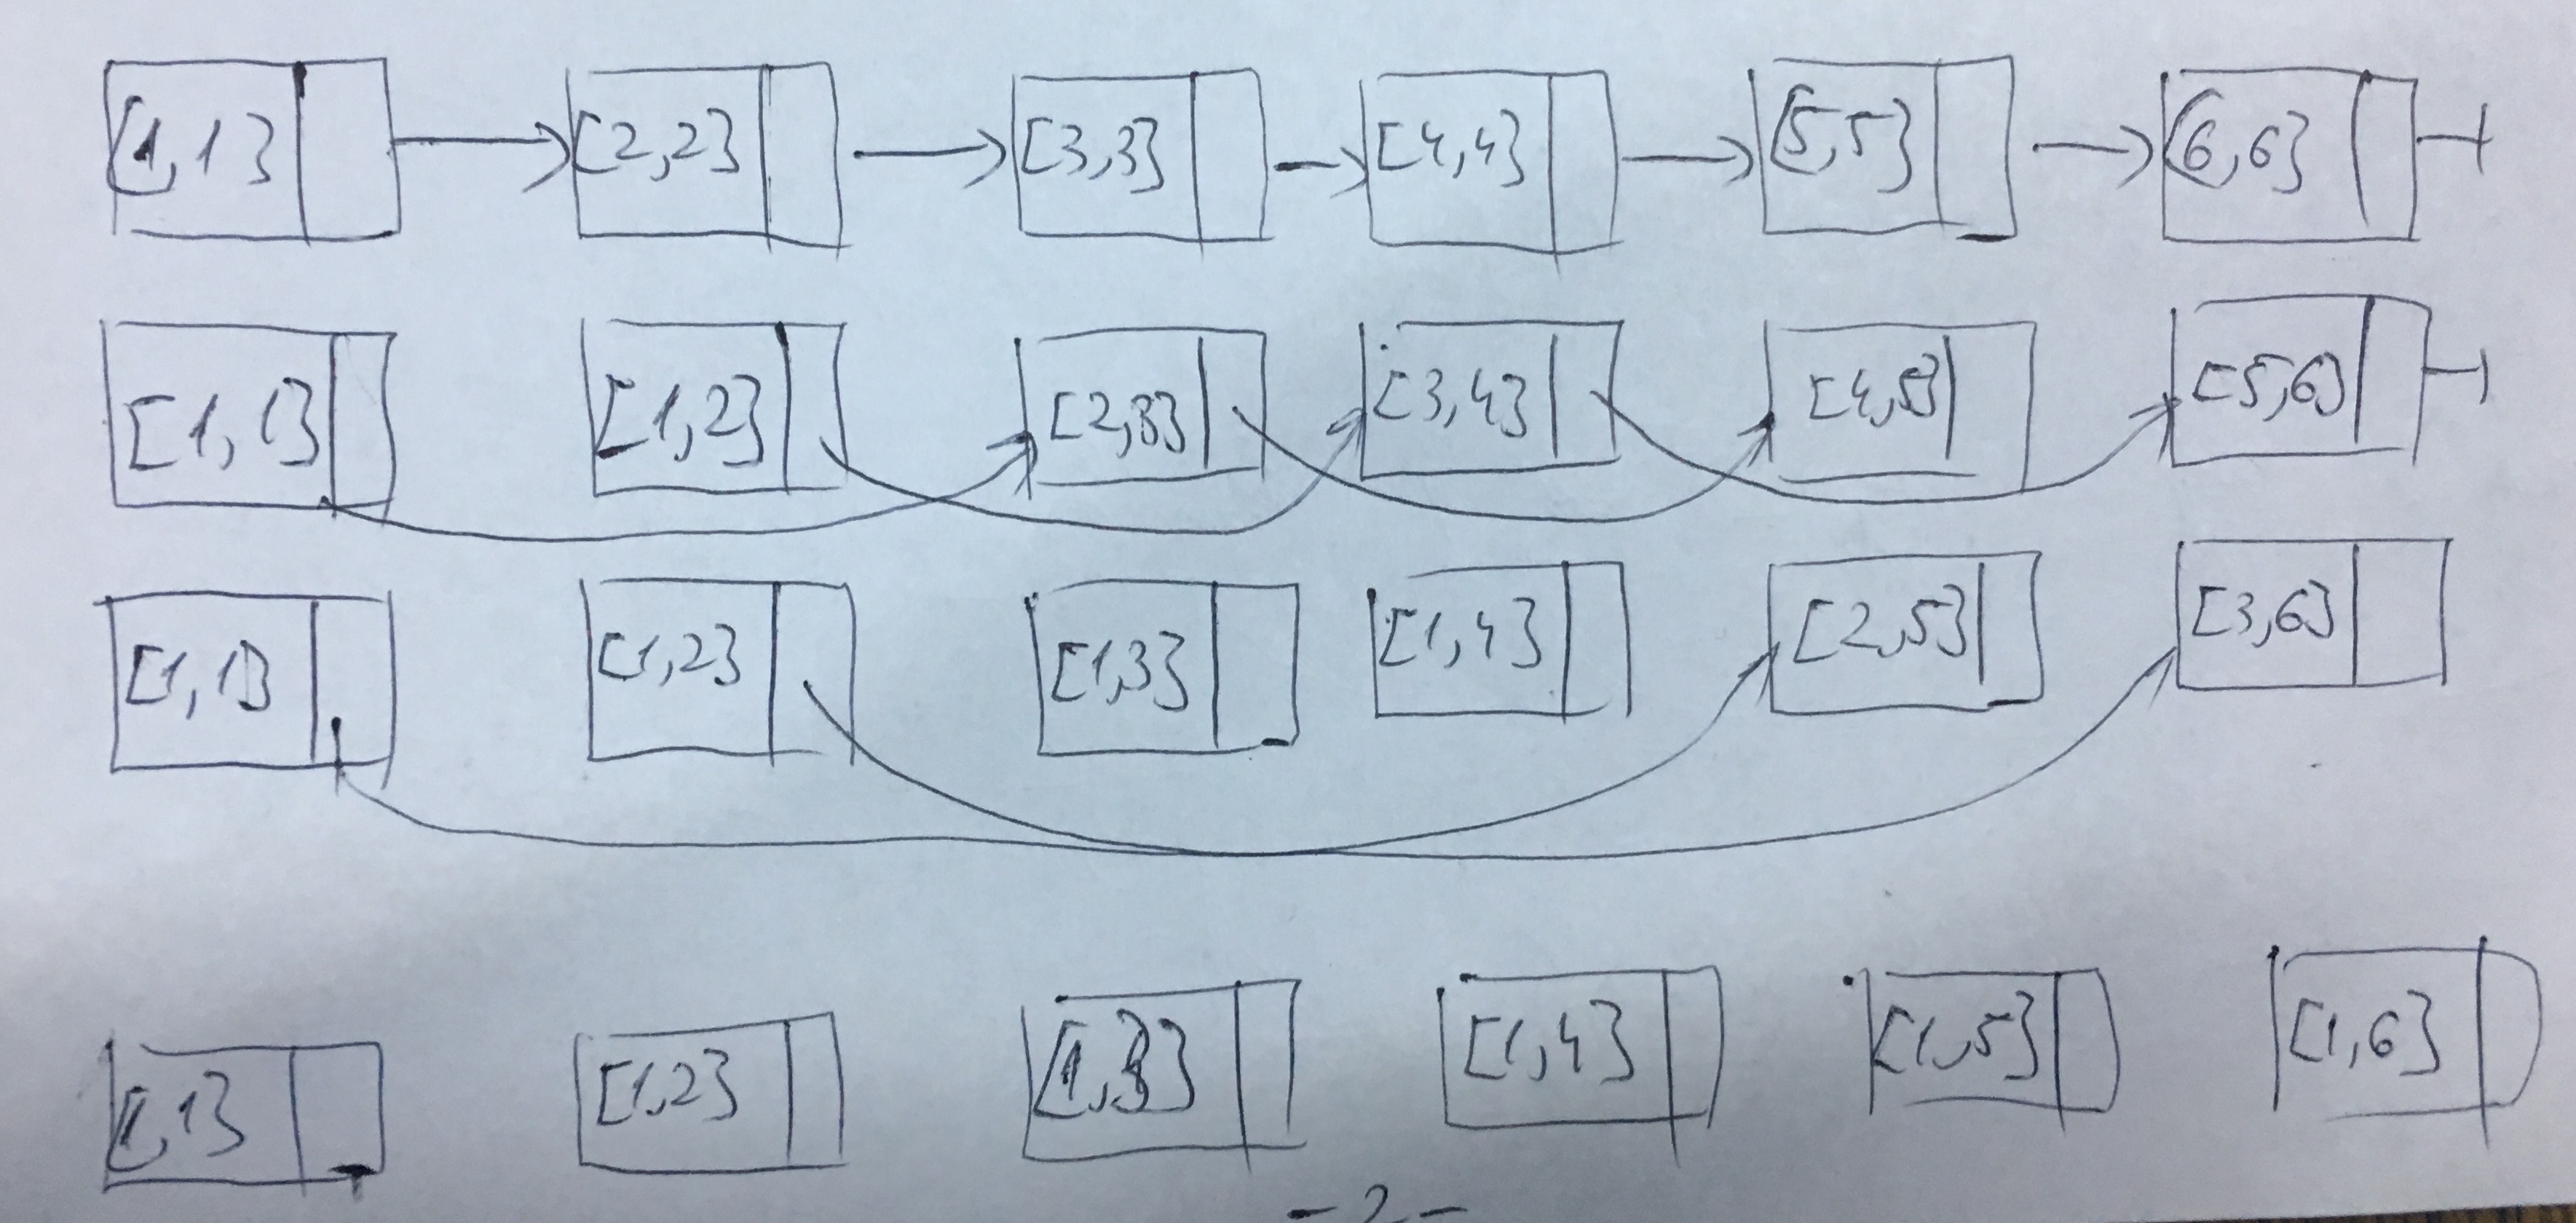 [1,1] [2,2] [3,3] [4,4] [5,5] [6,6]
[1,1] [1,2] [2,3] [3,4] [4,5] [5,6]
[1,1] [1,2] [1,3] [1,4] [2,5] [3,6]
[1,1] [1,2] [1,3] [1,4] [1,5] [1,6]
-2-